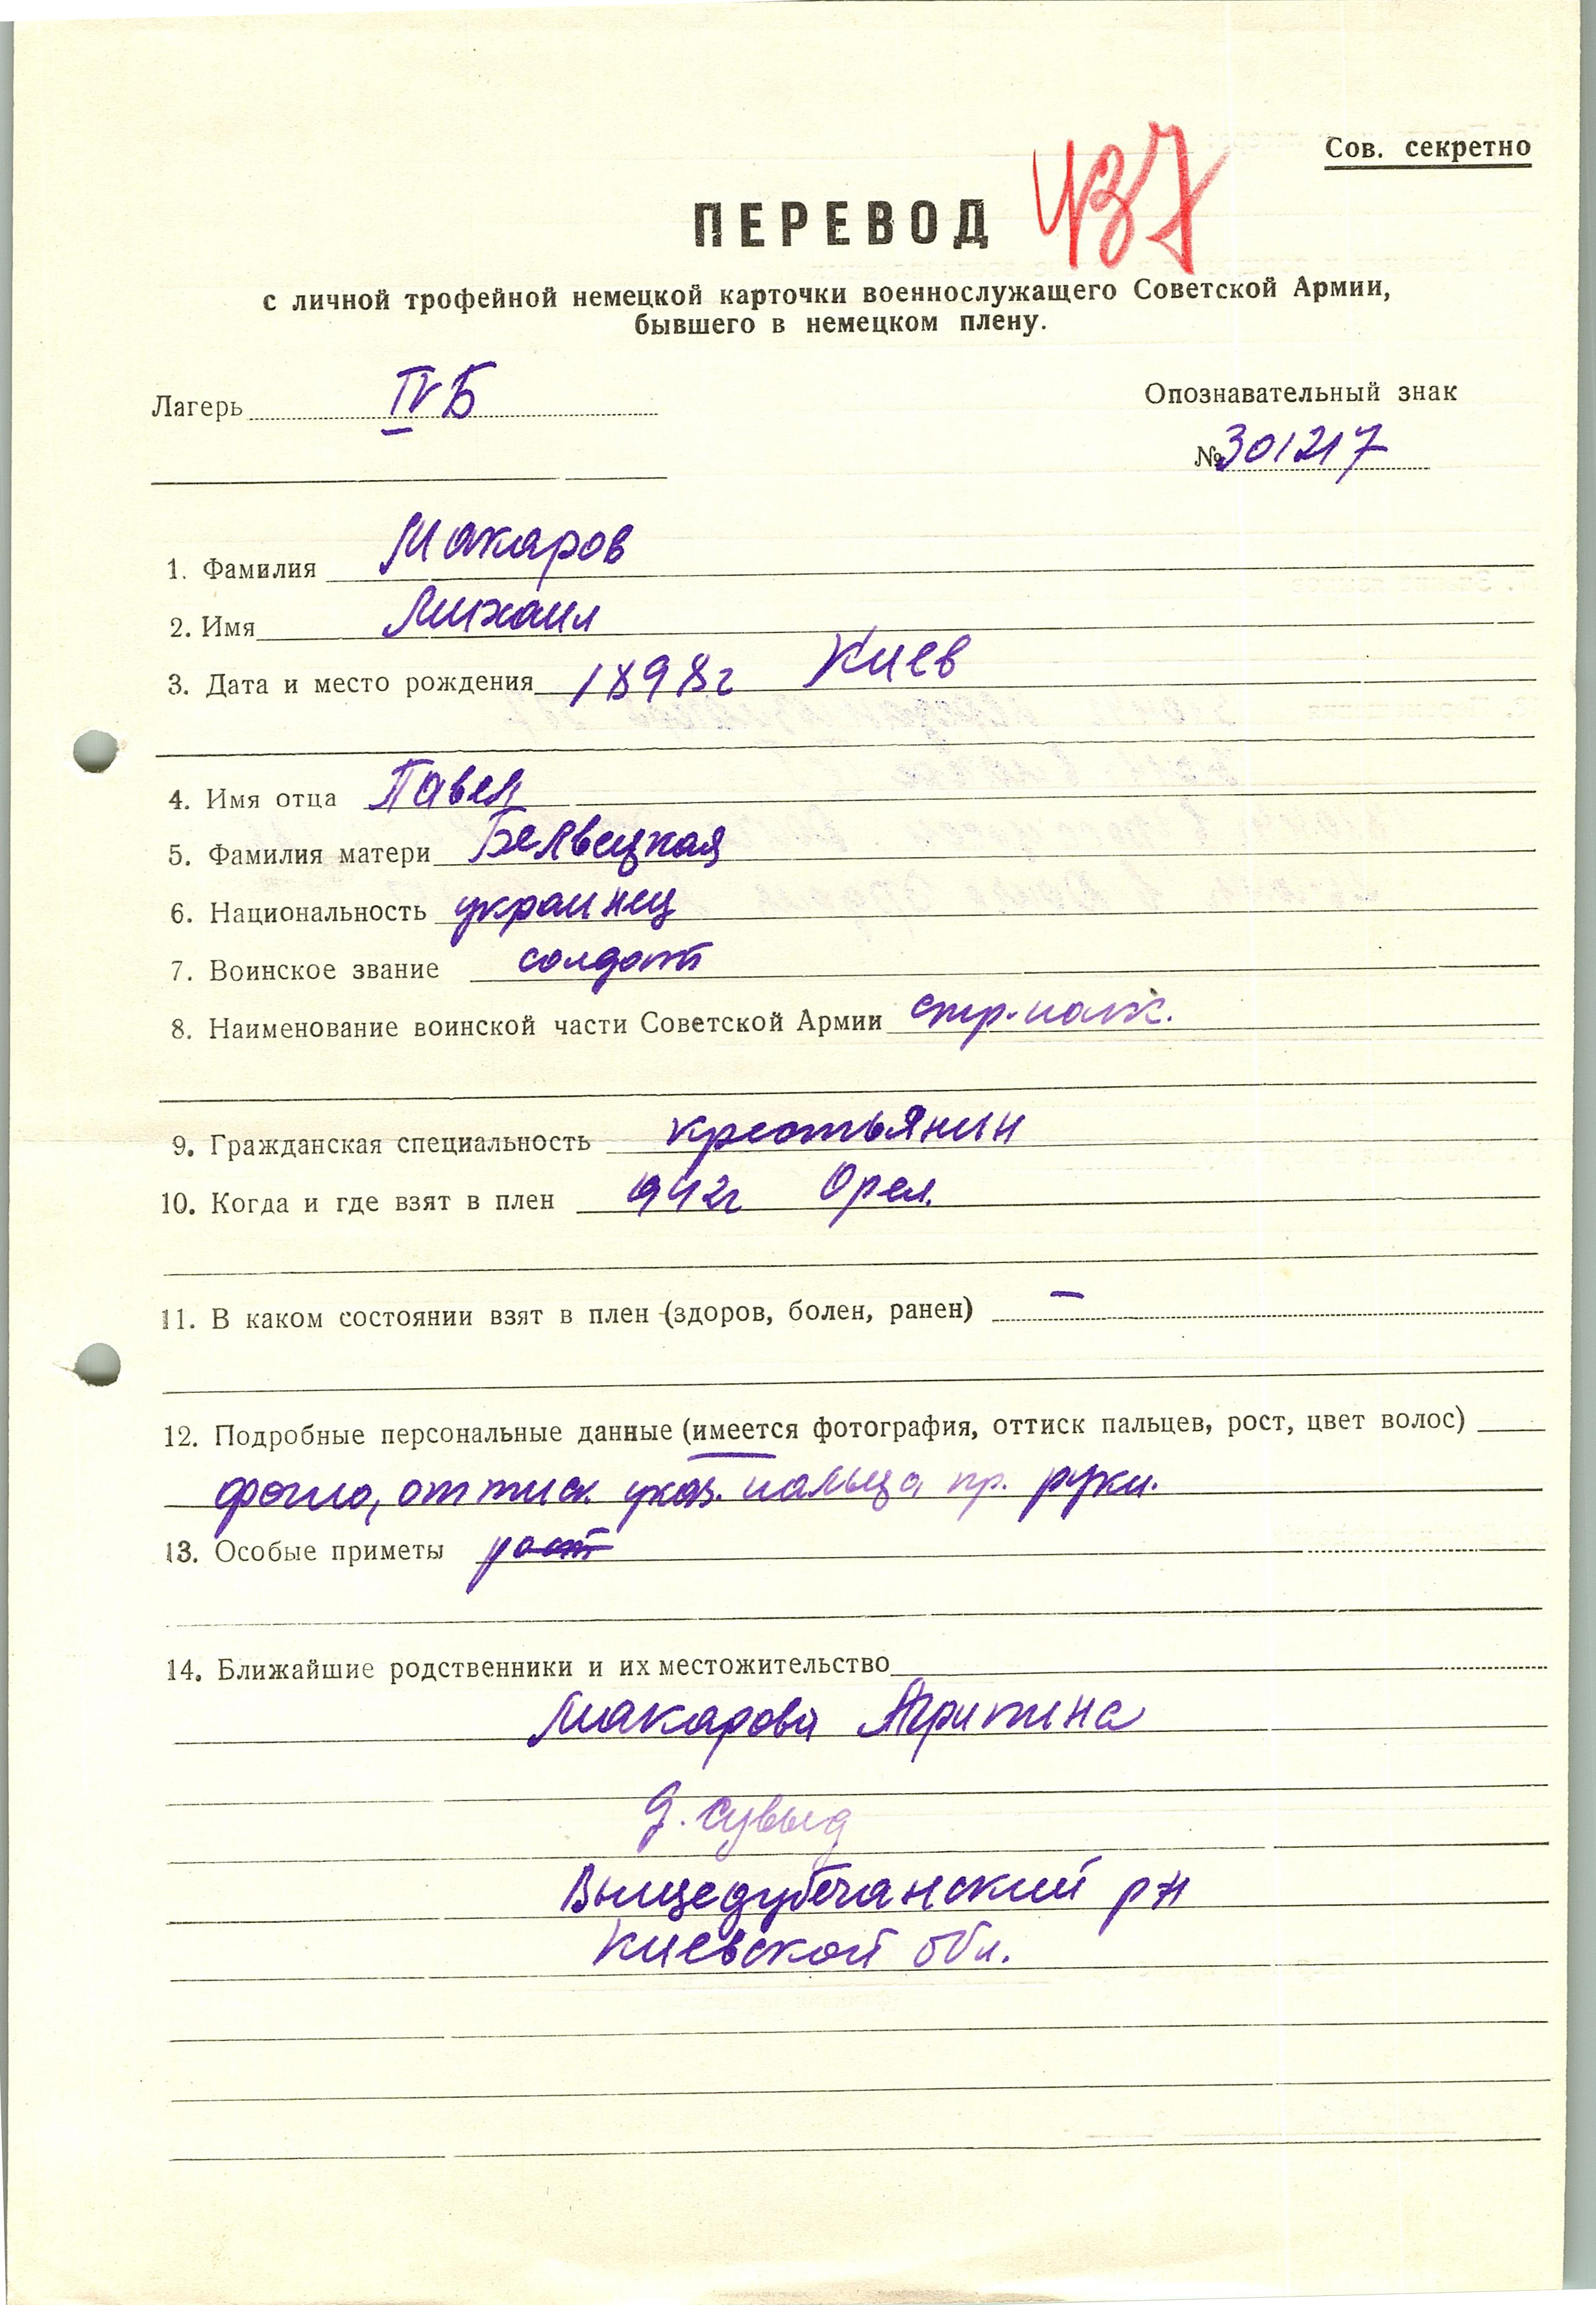 Сов. секретно
437
ПЕРЕВОД
с личной трофейной немецкой карточки военнослужащего Советской Армии,
бывшего в немецком плену.
Лагерь IV Б
Опознавательный знак
№ 301217
1. Фамилия Макаров
2. Имя Михаил
3. Дата и место рождения 1898г Киев
4. Имя отца Павел
5. Фамилия матери Белвецкая
6. Национальность украинец
7. Воинское звание солдат
8. Наименование воинской части Советской Армии стр. полк.
9. Гражданская специальность крестьянин
10. Когда и где взят в плен 942г Орел.
11. В каком состоянии взят в плен (здоров, болен, ранен) —
12. Подробные персональные данные (имеется фотография, оттиск пальцев, рост, цвет волос)
фото, оттиск указ. пальца пр. руки.
13. Особые приметы рост
14. Ближайшие родственники и их местожительство
Макарова
д. Сувыд
Вышедубечанский р-н
Киевской обл.